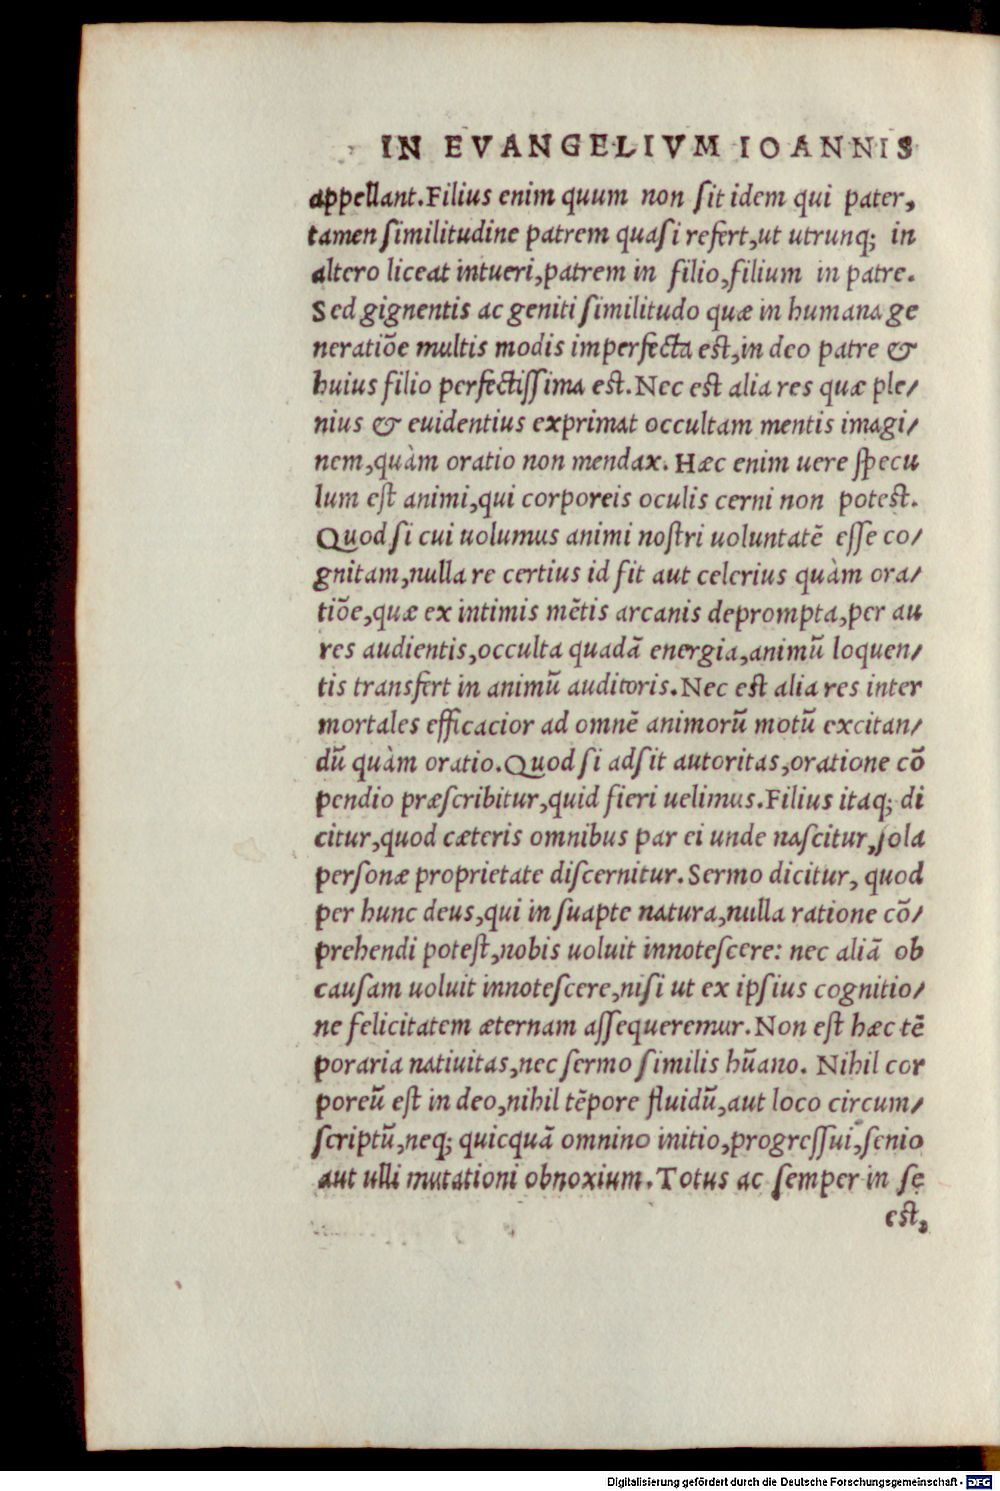 IN EVANGELIVM IOANNIS
appellant.Filius enim quum non ſit idem qui pater,
tamen ſimilitudine patrem quaſi refert,ut utrunq; in
altero liceat intueri,patrem in filio,filium in patre.
Sed gignentis ac geniti ſimilitudo quæ in humana ge
neratiõe multis modis imperfecta eſt,in deo patre &
huius filio perfectiſſima eſt.Nec eſt alia res quæ ple/
nius & euidentius exprimat occultam mentis imagi/
nem,quàm oratio non mendax. Hæc enim uere ſpecu
lum eſt animi,qui corporeis oculis cerni non poteſt.
Quod ſi cui uolumus animi noſtri uoluntatẽ eſſe co/
gnitam,nulla re certius id fit aut celerius quàm ora/
tiõe,quæ ex intimis mẽtis arcanis deprompta,per au
res audientis,occulta quadã energia,animũ loquen/
tis transfert in animũ auditoris.Nec eſt alia res inter
mortales efficacior ad omnẽ animorũ motũ excitan/
dũ quàm oratio.Quod ſi adſit autoritas,oratione cõ
pendio præſcribitur,quid fieri uelimus.Filius itaq; di
citur,quod cæteris omnibus par ei unde naſcitur,ſola
perſonæ proprietate diſcernitur.Sermo dicitur, quod
per hunc deus,qui in ſuapte natura,nulla ratione cõ/
prehendi poteſt,nobis uoluit innoteſcere: nec aliã ob
cauſam uoluit innoteſcere,niſi ut ex ipſius cognitio/
ne felicitatem æternam aſſequeremur.Non eſt hæc tẽ
poraria natiuitas,nec ſermo ſimilis hũano. Nihil cor
poreũ eſt in deo,nihil tẽpore fluidũ,aut loco circum/
ſcriptũ,neq; quicquã omnino initio,progreſſui,ſenio
aut ulli mutationi obnoxium.Totus ac ſemper in ſe
eſt,
Digitalisierung gefördert durch die Deutsche Forschungsgemeinschaft - DFG